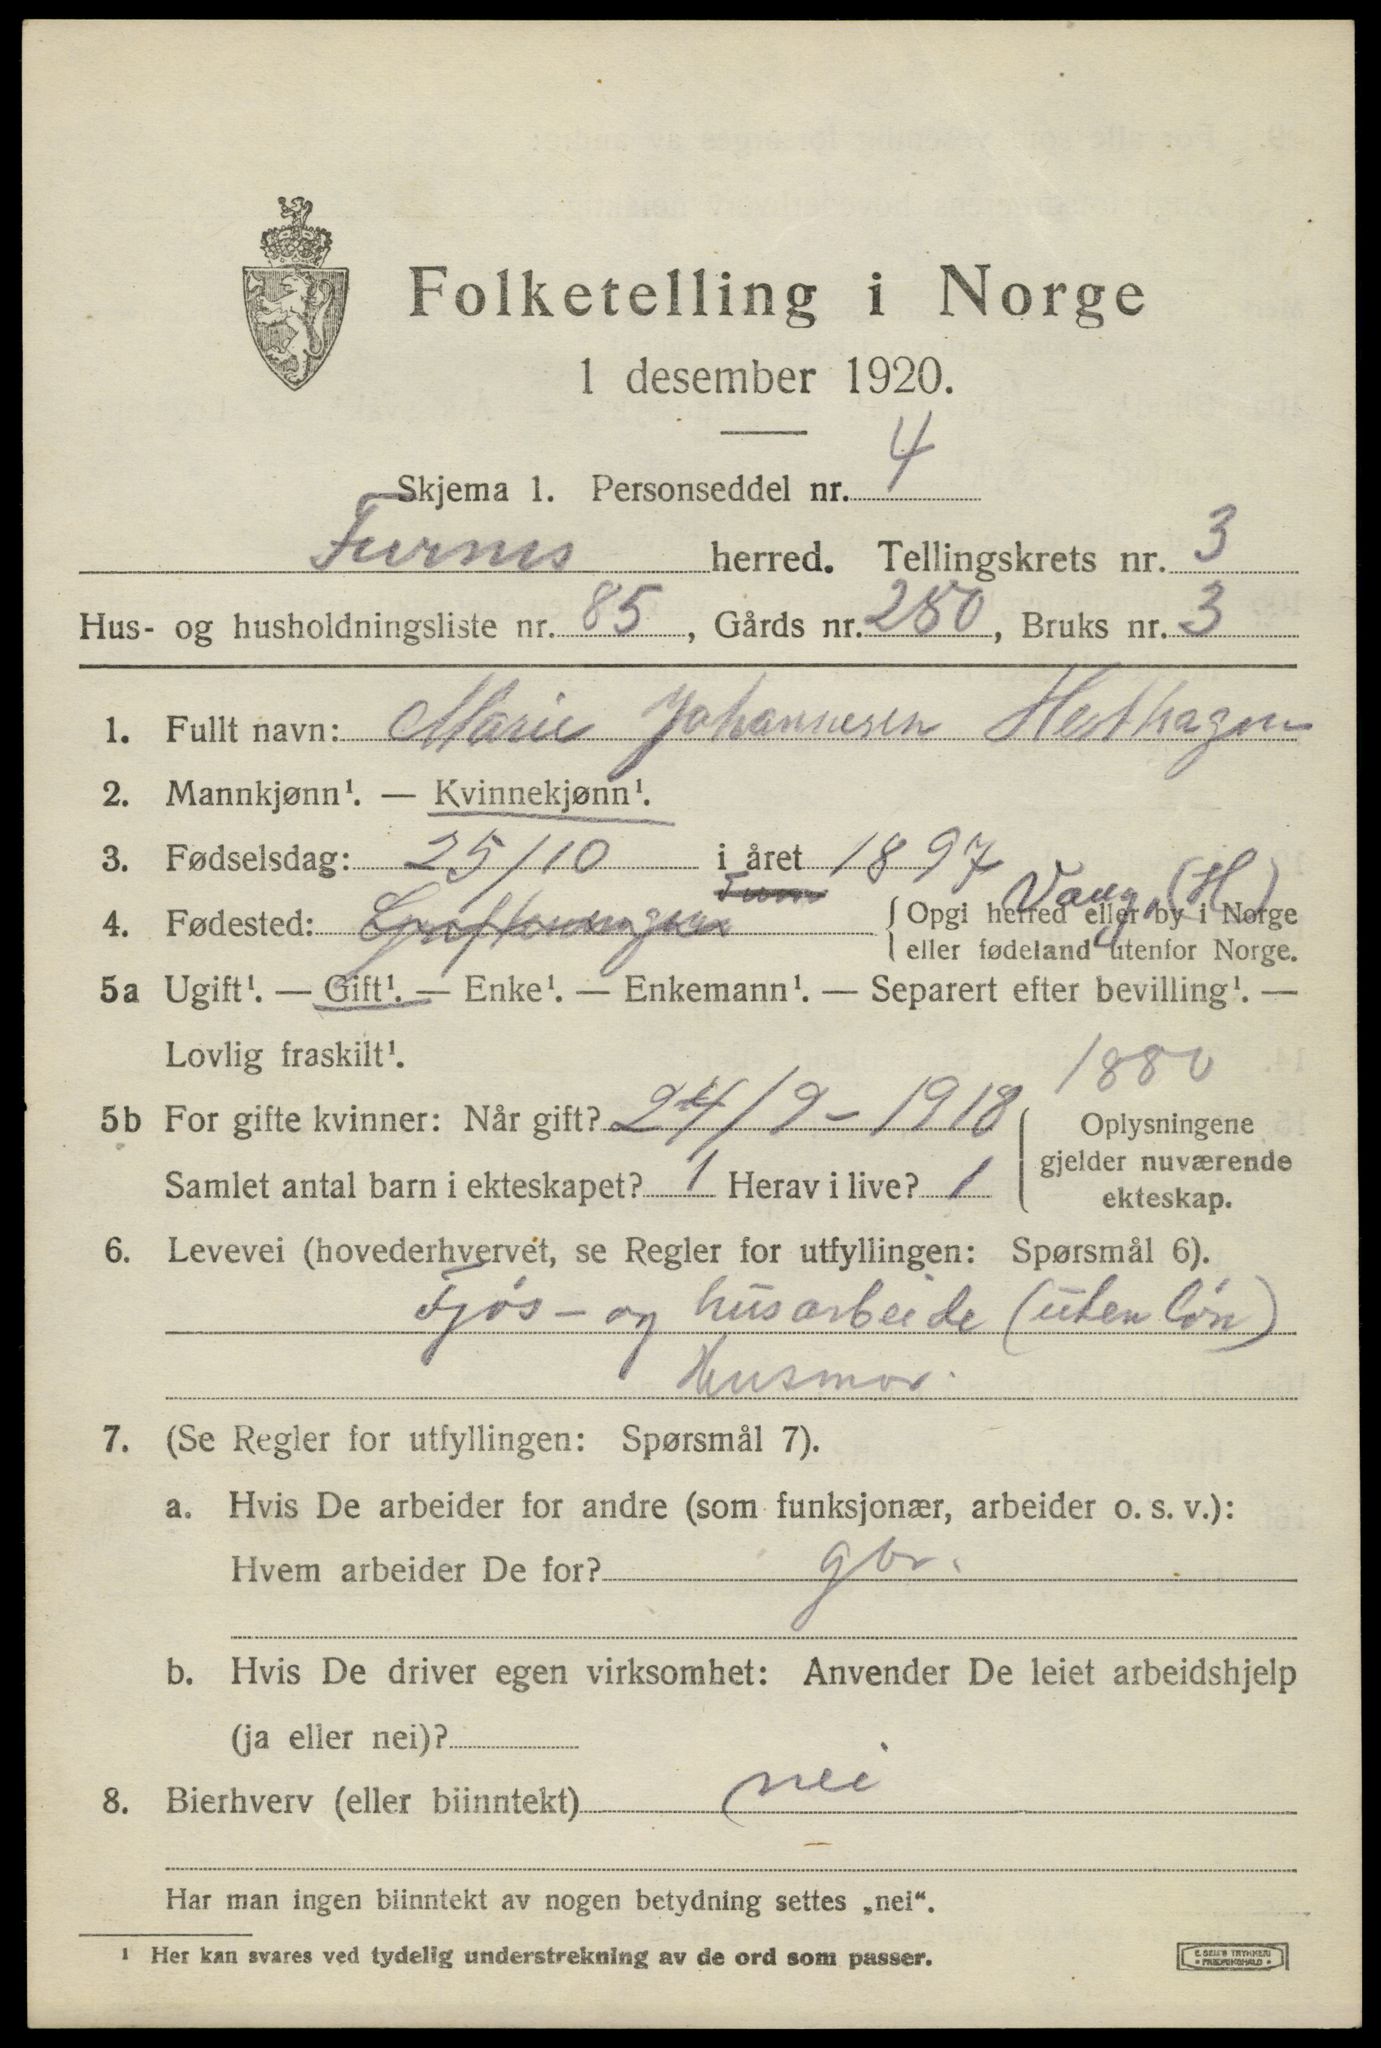 Folketelling i Norge
1 desember 1920.
Skjema 1. Personseddel nr. 4
Furnes herred. Tellingskrets nr. 3
Hus- og husholdningsliste nr. 85, Gårds nr. 250, Bruks nr. 3
1. Fullt navn: Marie Johannesen Hesthagen
2. Mannkjønn¹. — Kvinnekjønn¹.
3. Fødselsdag: 25/10 i året 1897
Vang (H)
4. Fødested: Opgi herred eller by i Norge
eller fødeland utenfor Norge.
5a Ugift¹. — Gift¹. — Enke¹. — Enkemann¹. — Separert efter bevilling¹. —
Lovlig fraskilt¹.
1880
5b For gifte kvinner: Når gift? 24/9 – 1918 Oplysningene
gjelder nuværende
ekteskap.
Samlet antal barn i ekteskapet? 1 Herav i live? 1
6. Levevei (hovederhvervet, se Regler for utfyllingen: Spørsmål 6).
Fjós – og húsarbeide (úten lón)
Husmor.
7. (Se Regler for utfyllingen: Spørsmål 7).
a. Hvis De arbeider for andre (som funksjonær, arbeider o. s. v.):
Hvem arbeider De for? gbr.
b. Hvis De driver egen virksomhet: Anvender De leiet arbeidshjelp
(ja eller nei)?
8. Bierhverv (eller biinntekt) nei
Har man ingen biinntekt av nogen betydning settes „nei“.
¹ Her kan svares ved tydelig understrekning av de ord som passer.
E. SEM'S TRYKKERI
• FREDRIKSHALD •